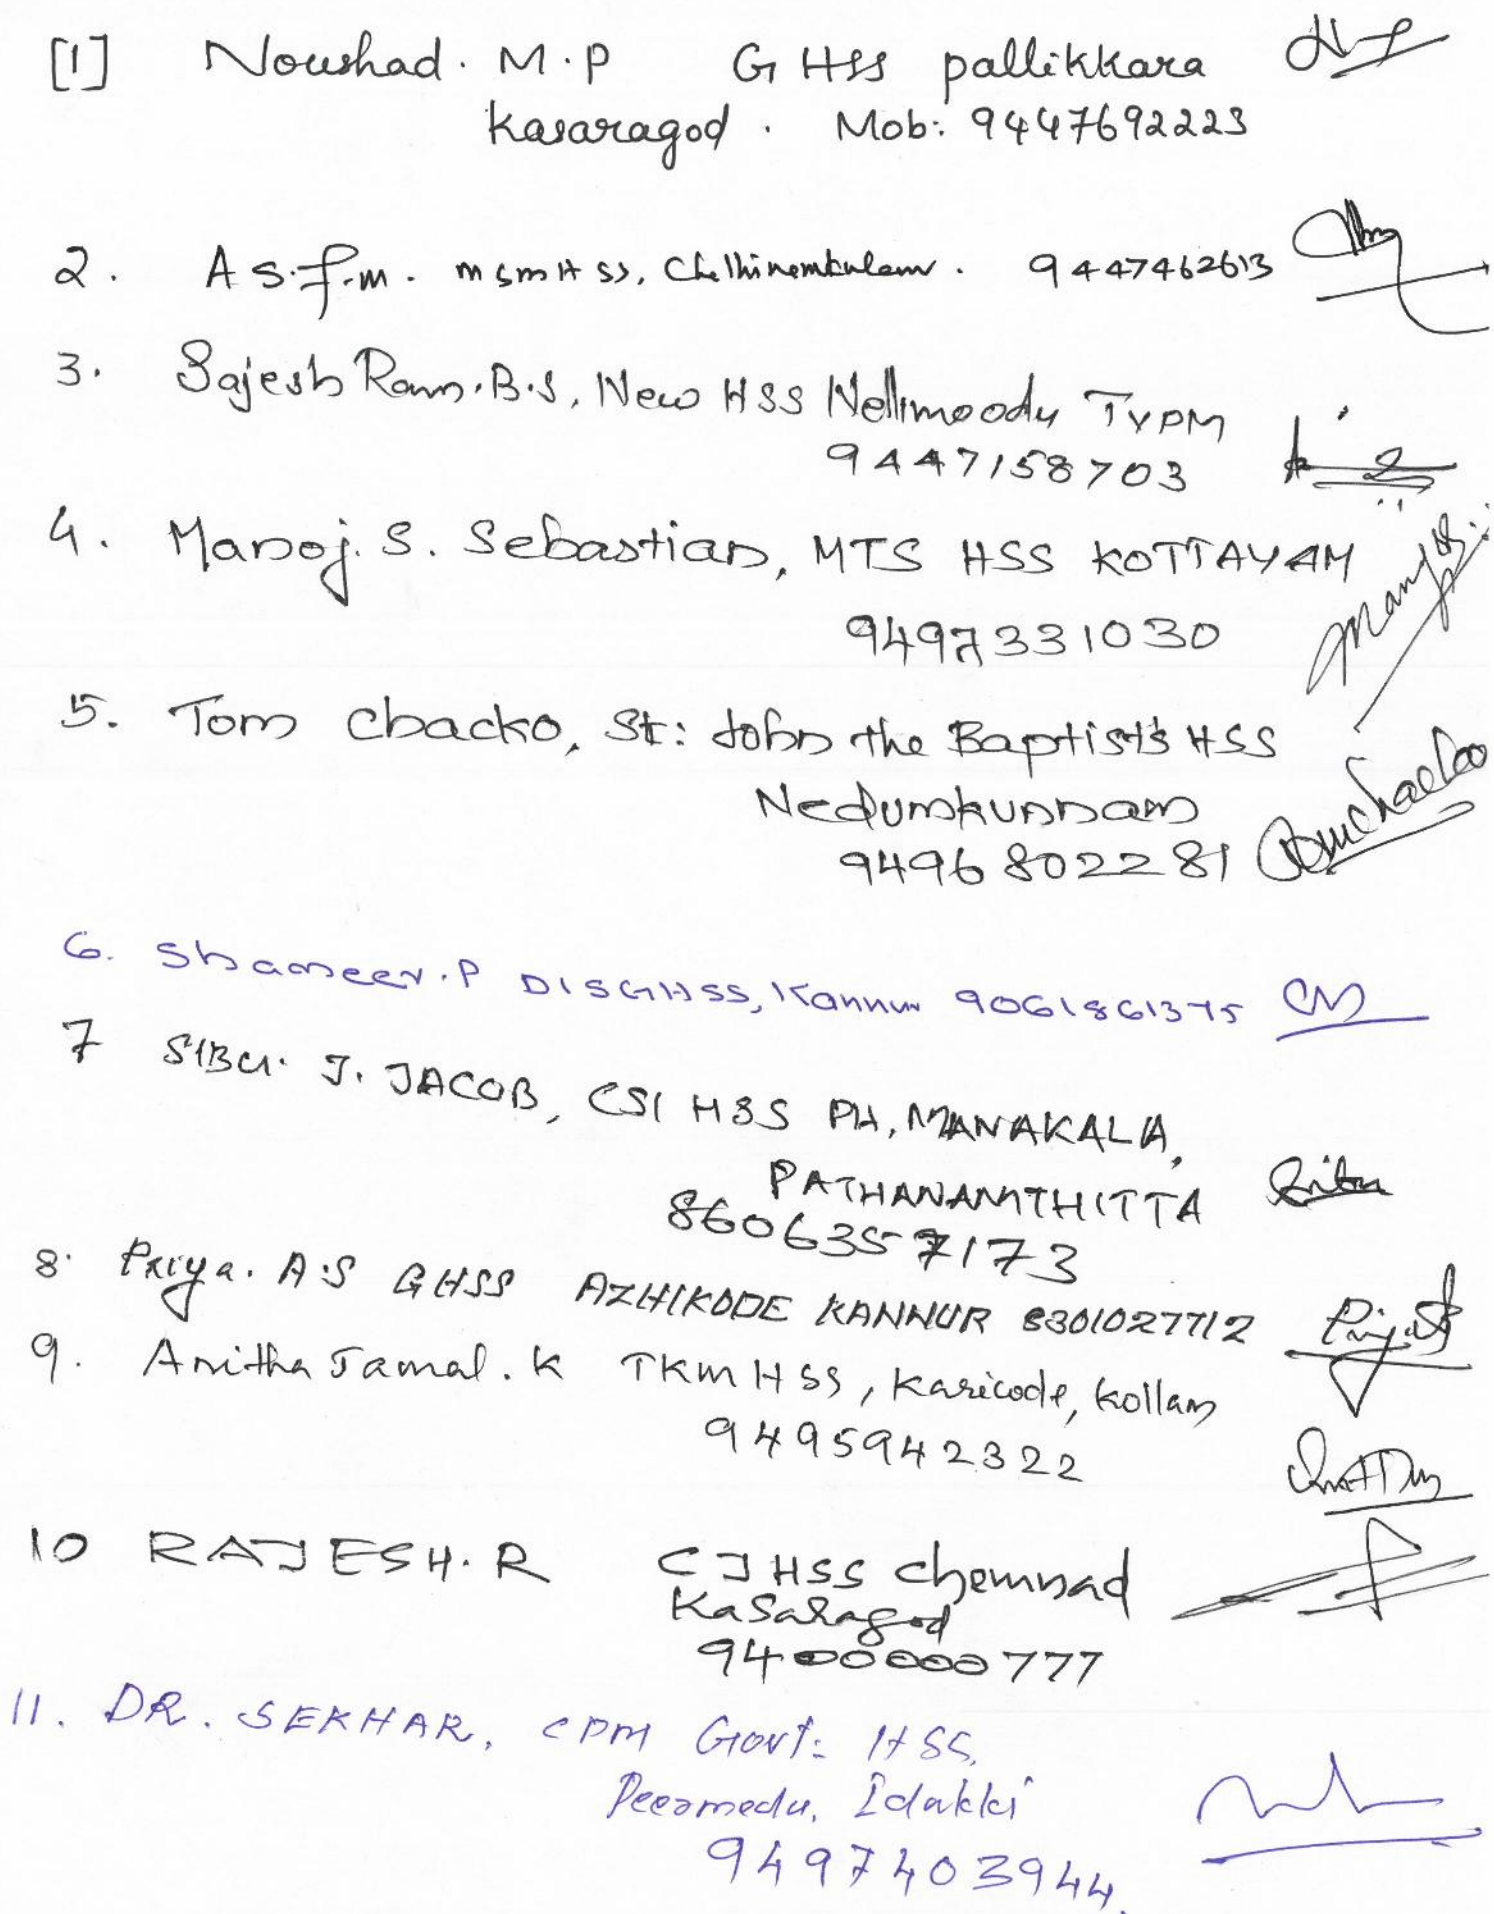 [1] Noushad. M.P GHSS pallikkara
Kasaragod. Mob: 9447692223
2. msmHSS, 9447462613
3. Sajesh Ram.B.S, New HSS Nellimoodu TVPM
9447158703
4. Manoj. S. Sebastian, MTS HSS KOTTAYAM
9497331030
5. Tom Chacko, St: John the Baptist's HSS
Nedumkunnam
9496802281
6. Shameer.P DISGHSS, Kannur 9061861375
7 SIBU. J. JACOB, CSI HSS PH, MANAKALA,
PATHANAMTHITTA
8606357173
8. Priya. A.S GHSS AZHIKODE KANNUR 8301027712
9. Anitha Jamal. K TKM HSS, Karicode, Kollam
9495942322
10 RAJESH. R CJHSS Chemnad
Kasaragod
9400000777
11. DR. SEKHAR, CPM Govt: HSS,
Peeramedu, Idukki
9497403944.